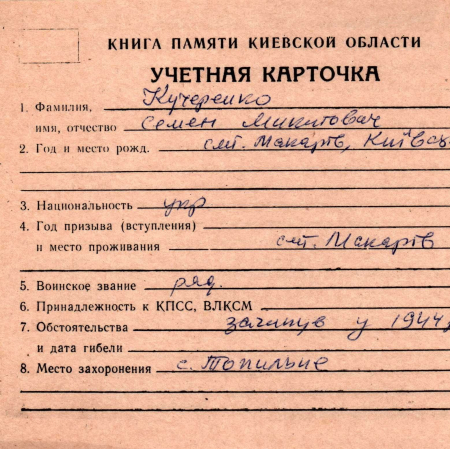 КНИГА ПАМЯТИ КИЕВСКОЙ ОБЛАСТИ
УЧЕТНАЯ КАРТОЧКА
1. Фамилия, Кучеренко
имя, отчество Семен Микитович
2. Год и место рожд. смт. Макарів, Київсь
3. Национальность укр
4. Год призыва (вступления)
и место проживания смт. Макарів
5. Воинское звание ряд.
6. Принадлежность к КПСС, ВЛКСМ
7. Обстоятельства загинув у 1944
и дата гибели
8. Место захоронения с. Топильне